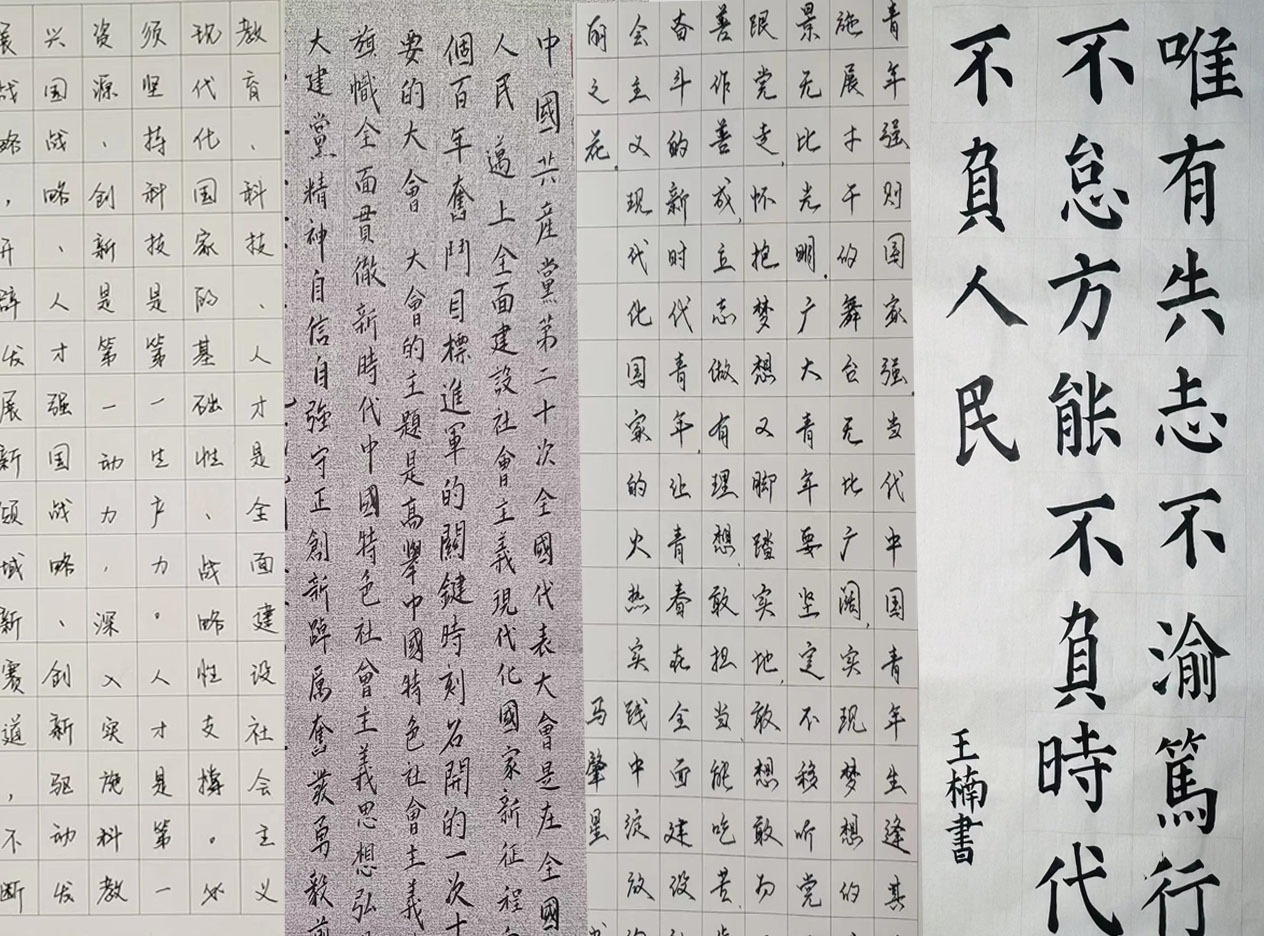 教育、科技、人才是全面建设社会主义
现代化国家的基础性、战略性支撑。必
须坚持科技是第一生产力。人才是第一
资源、创新是第一动力,深入实施科教
兴国战略、人才强国战略、创新驱动发
展战略,开辟发展新领域新赛道,不断
中國共産黨第二十次全國代表大會是在全國
人民邁上全面建設社會主義現代化國家新征程
個百年奮鬥目標進軍的關鍵時刻召開的一次十
要的大會 大會的主題是高舉中國特色社會主義
旗幟全面貫徹新時代中國特色社會主義思想弘
大建黨精神自信自強守正創新踔厲奮發勇毅前
青年强则国家强.当代中国青年生逢其
施展才干的舞台无比广阔,实现梦想的
景无比光明.广大青年要坚定不移听党
跟党走,怀抱梦想又脚踏实地,敢想敢为
善作善成,立志做有理想、敢担当、能吃苦、
奋斗的新时代青年,让青春在全面建设
会主义现代化国家的火热实践中绽放
丽之花.
马肇星
唯有共志不渝篤行
不怠方能不負時代
不負人民
王楠書